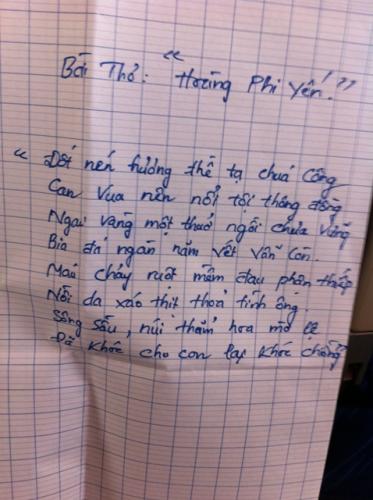 Bài Thơ: "Hoàng Phi Yến."
"Đốt nén hương thề tạ chúa Công
Can Vua nên nổi tội thông đồng
Ngai vàng một thuở ngồi chưa vững
Bia đá ngàn năm vết vẫn còn.
Máu chảy ruột mềm đau phận thiếp
Nồi da xáo thịt thoả tình ông.
Sông sầu, núi thảm hoa mờ lệ
Đã khóc cho con lại khóc chồng"